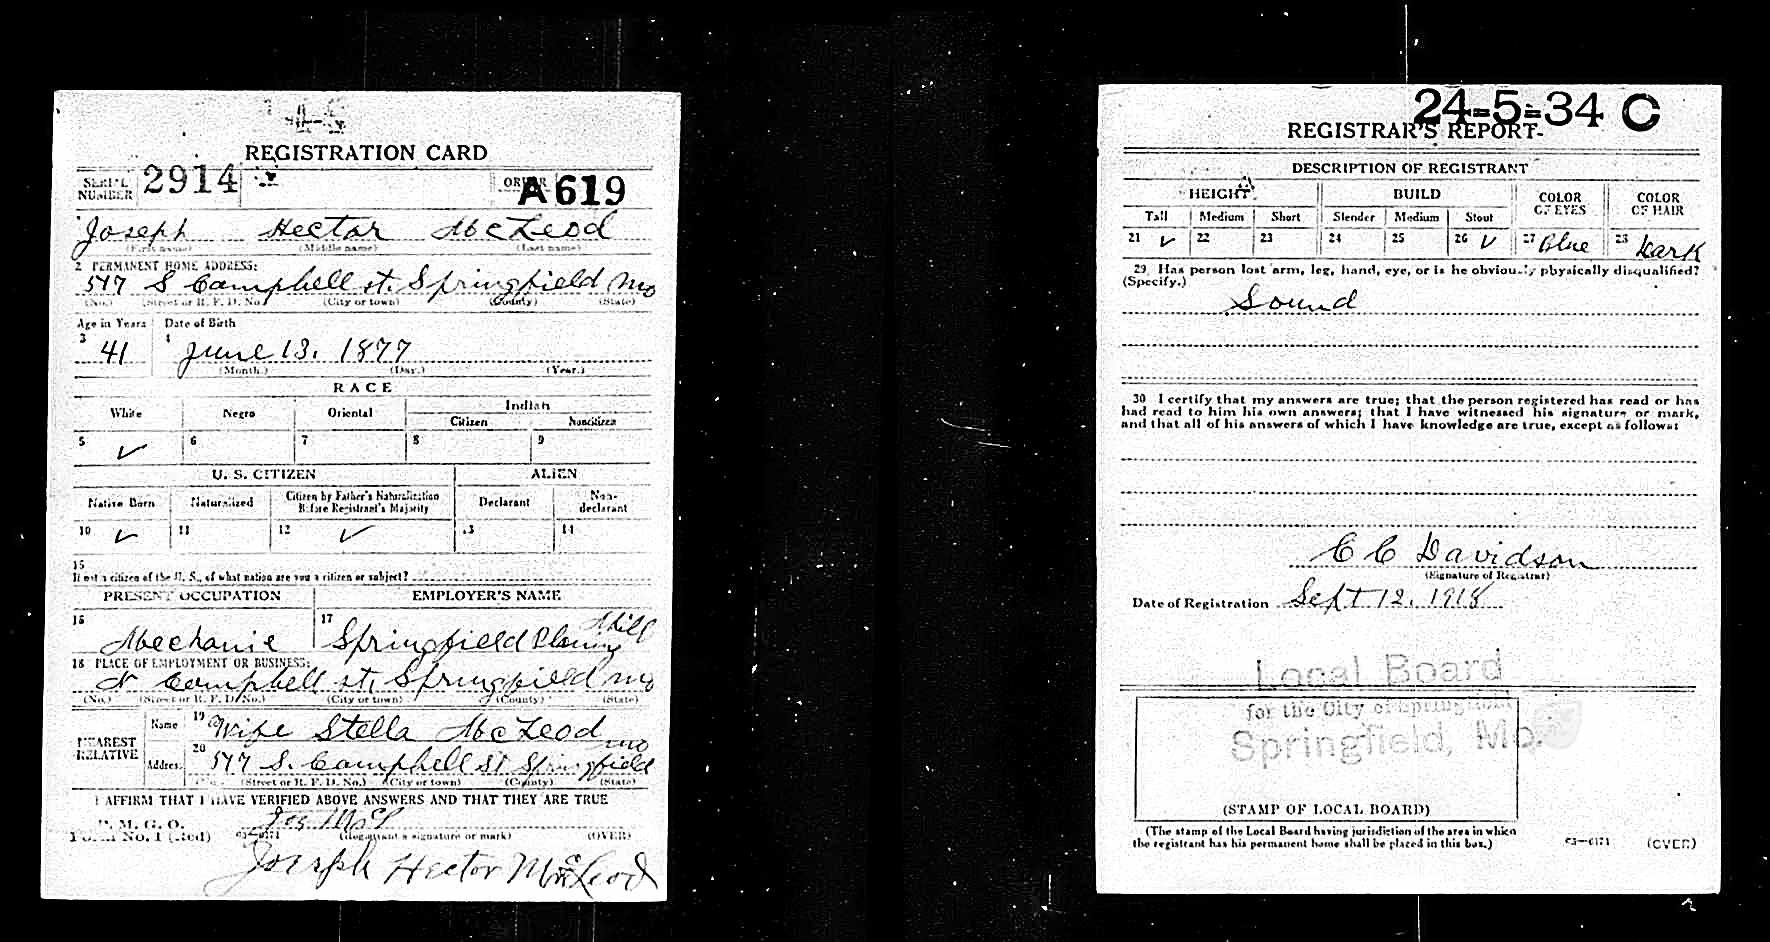 REGISTRATION CARD
SERIAL NUMBER 2914 ORDER A619
Joseph Hector McLeod
(First name) (Middle name) (Last name)
2 PERMANENT HOME ADDRESS:
547 S Campbell st. Springfield Mo
(No.) (Street or R. F. D. No.) (City or town) (County) (State)
Age in Years Date of Birth
3 41 4 June 13. 1877
(Month.) (Day.) (Year.)
RACE
White Negro Oriental Indian
Citizen Noncitizen
5 ✓ 6 7 8 9
U. S. CITIZEN ALIEN
Native Born Naturalized Citizen by Father's Naturalization Before Registrant's Majority Declarant Non-declarant
10 ✓ 11 12 ✓ 13 14
15
If not a citizen of the U. S., of what nation are you a citizen or subject?
PRESENT OCCUPATION EMPLOYER'S NAME
16 Mechanic 17 Springfield Planing Mill
18 PLACE OF EMPLOYMENT OR BUSINESS:
Campbell st, Springfield Mo
(No.) (Street or R. F. D. No.) (City or town) (County) (State)
NEAREST RELATIVE
Name 19 Wife Stella McLeod
Address 20 547 S. Campbell St Springfield Mo
(Street or R. F. D. No.) (City or town) (County) (State)
I AFFIRM THAT I HAVE VERIFIED ABOVE ANSWERS AND THAT THEY ARE TRUE
P. M. G. O.
Form No. 1 (Red) 03-6171 (Registrant's signature or mark) (OVER)
Joseph Hector McLeod
24-5-34 C
REGISTRAR'S REPORT
DESCRIPTION OF REGISTRANT
HEIGHT BUILD COLOR OF EYES COLOR OF HAIR
Tall Medium Short Slender Medium Stout
21 ✓ 22 23 24 25 26 ✓ 27 Blue 28 Dark
29 Has person lost arm, leg, hand, eye, or is he obviously physically disqualified?
(Specify.)
Sound
30 I certify that my answers are true; that the person registered has read or has
had read to him his own answers; that I have witnessed his signature or mark,
and that all of his answers of which I have knowledge are true, except as follows:
C C Davidson
(Signature of Registrar)
Date of Registration Sept 12, 1918
Local Board
for the City of Springfield
Springfield, Mo.
(STAMP OF LOCAL BOARD)
(The stamp of the Local Board having jurisdiction of the area in which
the registrant has his permanent home shall be placed in this box.)
03-6171 (OVER)